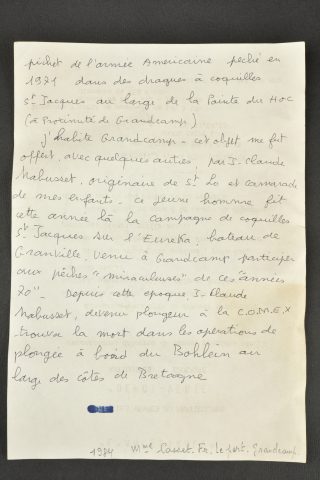 pichet de l'armée Américaine pêché en
1971 dans des dragues à coquilles
St Jacques au large de la Pointe du Hoc
(à Proximité de Grandcamp)
J'habite Grandcamp - cet objet me fut
offert, avec quelques autres, par J. Claude
Mabusset, originaire de St Lo et camarade
de mes enfants. ce jeune homme fit
cette année là la campagne de coquilles
St Jacques sur l'Eureka, bateau de
Granville, venu à Grandcamp participer
aux pêches "miraculeuses" de ces "années
70". Depuis cette époque J. Claude
Mabusset, devenu plongeur à la C.O.M.E.X
trouva la mort dans les opérations de
plongée à bord du Bohlein au
large des côtes de Bretagne
1984 Mme Fr. le port. Grandcamp